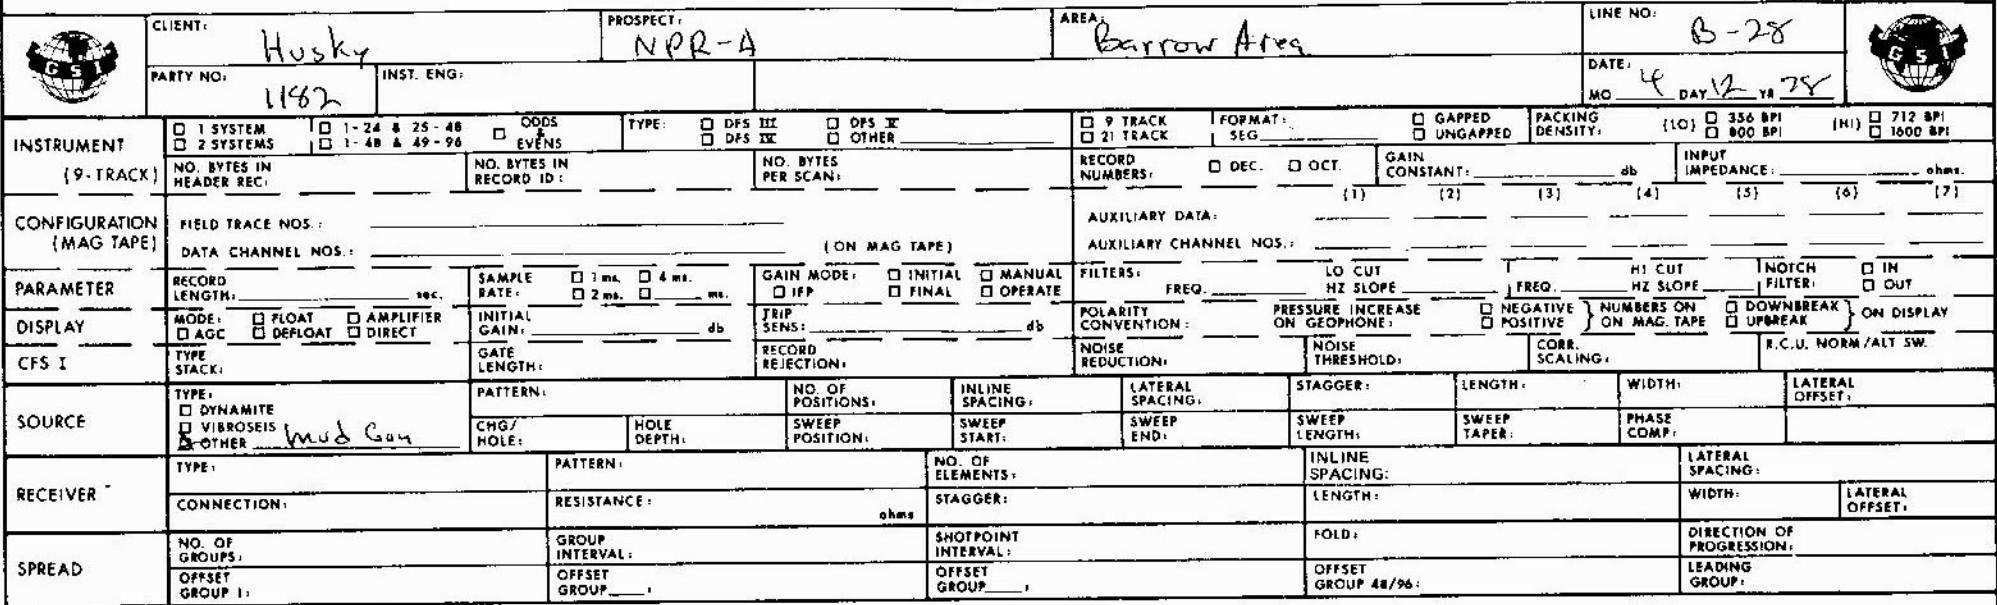 GSI CLIENT: Husky PROSPECT: NPR-A AREA: Barrow Area LINE NO: B-28 GSI
PARTY NO: 1182 INST. ENG: DATE: MO 4 DAY 12 YR 78
INSTRUMENT (9-TRACK)
☐ 1 SYSTEM ☐ 1-24 & 25-48 ☐ ODDS & EVENS TYPE: ☐ DFS III ☐ DFS V ☐ 9 TRACK FORMAT: ☐ GAPPED PACKING DENSITY: (LO) ☐ 356 BPI (HI) ☐ 712 BPI
☐ 2 SYSTEMS ☐ 1-48 & 49-96 ☐ DFS IV ☐ OTHER ☐ 21 TRACK SEG ☐ UNGAPPED ☐ 800 BPI ☐ 1600 BPI
NO. BYTES IN HEADER REC: NO. BYTES IN RECORD ID: NO. BYTES PER SCAN: RECORD NUMBERS: ☐ DEC. ☐ OCT. GAIN CONSTANT: db INPUT IMPEDANCE: ohms.
CONFIGURATION (MAG TAPE)
(1) (2) (3) (4) (5) (6) (7)
FIELD TRACE NOS.: AUXILIARY DATA:
DATA CHANNEL NOS.: (ON MAG TAPE) AUXILIARY CHANNEL NOS.:
PARAMETER RECORD LENGTH: sec. SAMPLE RATE: ☐ 1 ms. ☐ 4 ms. ☐ 2 ms. ☐ ms. GAIN MODE: ☐ INITIAL ☐ MANUAL ☐ IFP ☐ FINAL ☐ OPERATE FILTERS: LO CUT FREQ. HZ SLOPE HI CUT FREQ. HZ SLOPE NOTCH FILTER: ☐ IN ☐ OUT
DISPLAY MODE: ☐ FLOAT ☐ AMPLIFIER ☐ AGC ☐ DEFLOAT ☐ DIRECT INITIAL GAIN: db TRIP SENS: db POLARITY CONVENTION: PRESSURE INCREASE ON GEOPHONE: ☐ NEGATIVE ☐ POSITIVE } NUMBERS ON ON MAG. TAPE ☐ DOWNBREAK ☐ UPBREAK } ON DISPLAY
CFS I TYPE STACK: GATE LENGTH: RECORD REJECTION: NOISE REDUCTION: NOISE THRESHOLD: CORR. SCALING: R.C.U. NORM/ALT SW.
SOURCE TYPE: ☐ DYNAMITE ☐ VIBROSEIS ☒ OTHER Mud Gun
PATTERN: NO. OF POSITIONS: INLINE SPACING: LATERAL SPACING: STAGGER: LENGTH: WIDTH: LATERAL OFFSET:
CHG/HOLE: HOLE DEPTH: SWEEP POSITION: SWEEP START: SWEEP END: SWEEP LENGTH: SWEEP TAPER: PHASE COMP:
RECEIVER TYPE: PATTERN: NO. OF ELEMENTS: INLINE SPACING: LATERAL SPACING:
CONNECTION: RESISTANCE: ohms STAGGER: LENGTH: WIDTH: LATERAL OFFSET:
SPREAD NO. OF GROUPS: GROUP INTERVAL: SHOTPOINT INTERVAL: FOLD: DIRECTION OF PROGRESSION:
OFFSET GROUP 1: OFFSET GROUP : OFFSET GROUP : OFFSET GROUP 48/96: LEADING GROUP: